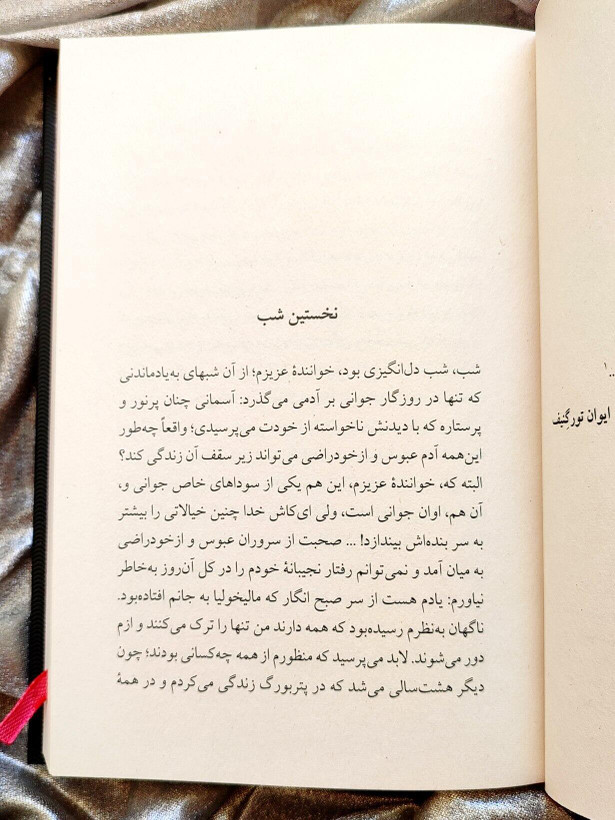 ..۱
ایوان تورگنِیف
نخستین شب
شب، شب دل‌انگیزی بود، خوانندهٔ عزیزم؛ از آن شبهای به‌یادماندنی
که تنها در روزگار جوانی بر آدمی می‌گذرد: آسمانی چنان پرنور و
پرستاره که با دیدنش ناخواسته از خودت می‌پرسیدی؛ واقعاً چه‌طور
این‌همه آدم عبوس و ازخودراضی می‌تواند زیر سقف آن زندگی کند؟
البته که، خوانندهٔ عزیزم، این هم یکی از سوداهای خاص جوانی و،
آن هم، اوان جوانی است، ولی ای‌کاش خدا چنین خیالاتی را بیشتر
به سر بنده‌اش بیندازد! ... صحبت از سروران عبوس و ازخودراضی
به میان آمد و نمی‌توانم رفتار نجیبانهٔ خودم را در کل آن‌روز به‌خاطر
نیاورم: یادم هست از سر صبح انگار که مالیخولیا به جانم افتاده‌بود.
ناگهان به‌نظرم رسیده‌بود که همه دارند من تنها را ترک می‌کنند و ازم
دور می‌شوند. لابد می‌پرسید که منظورم از همه چه‌کسانی بودند؛ چون
دیگر هشت‌سالی می‌شد که در پتربورگ زندگی می‌کردم و در همهٔ